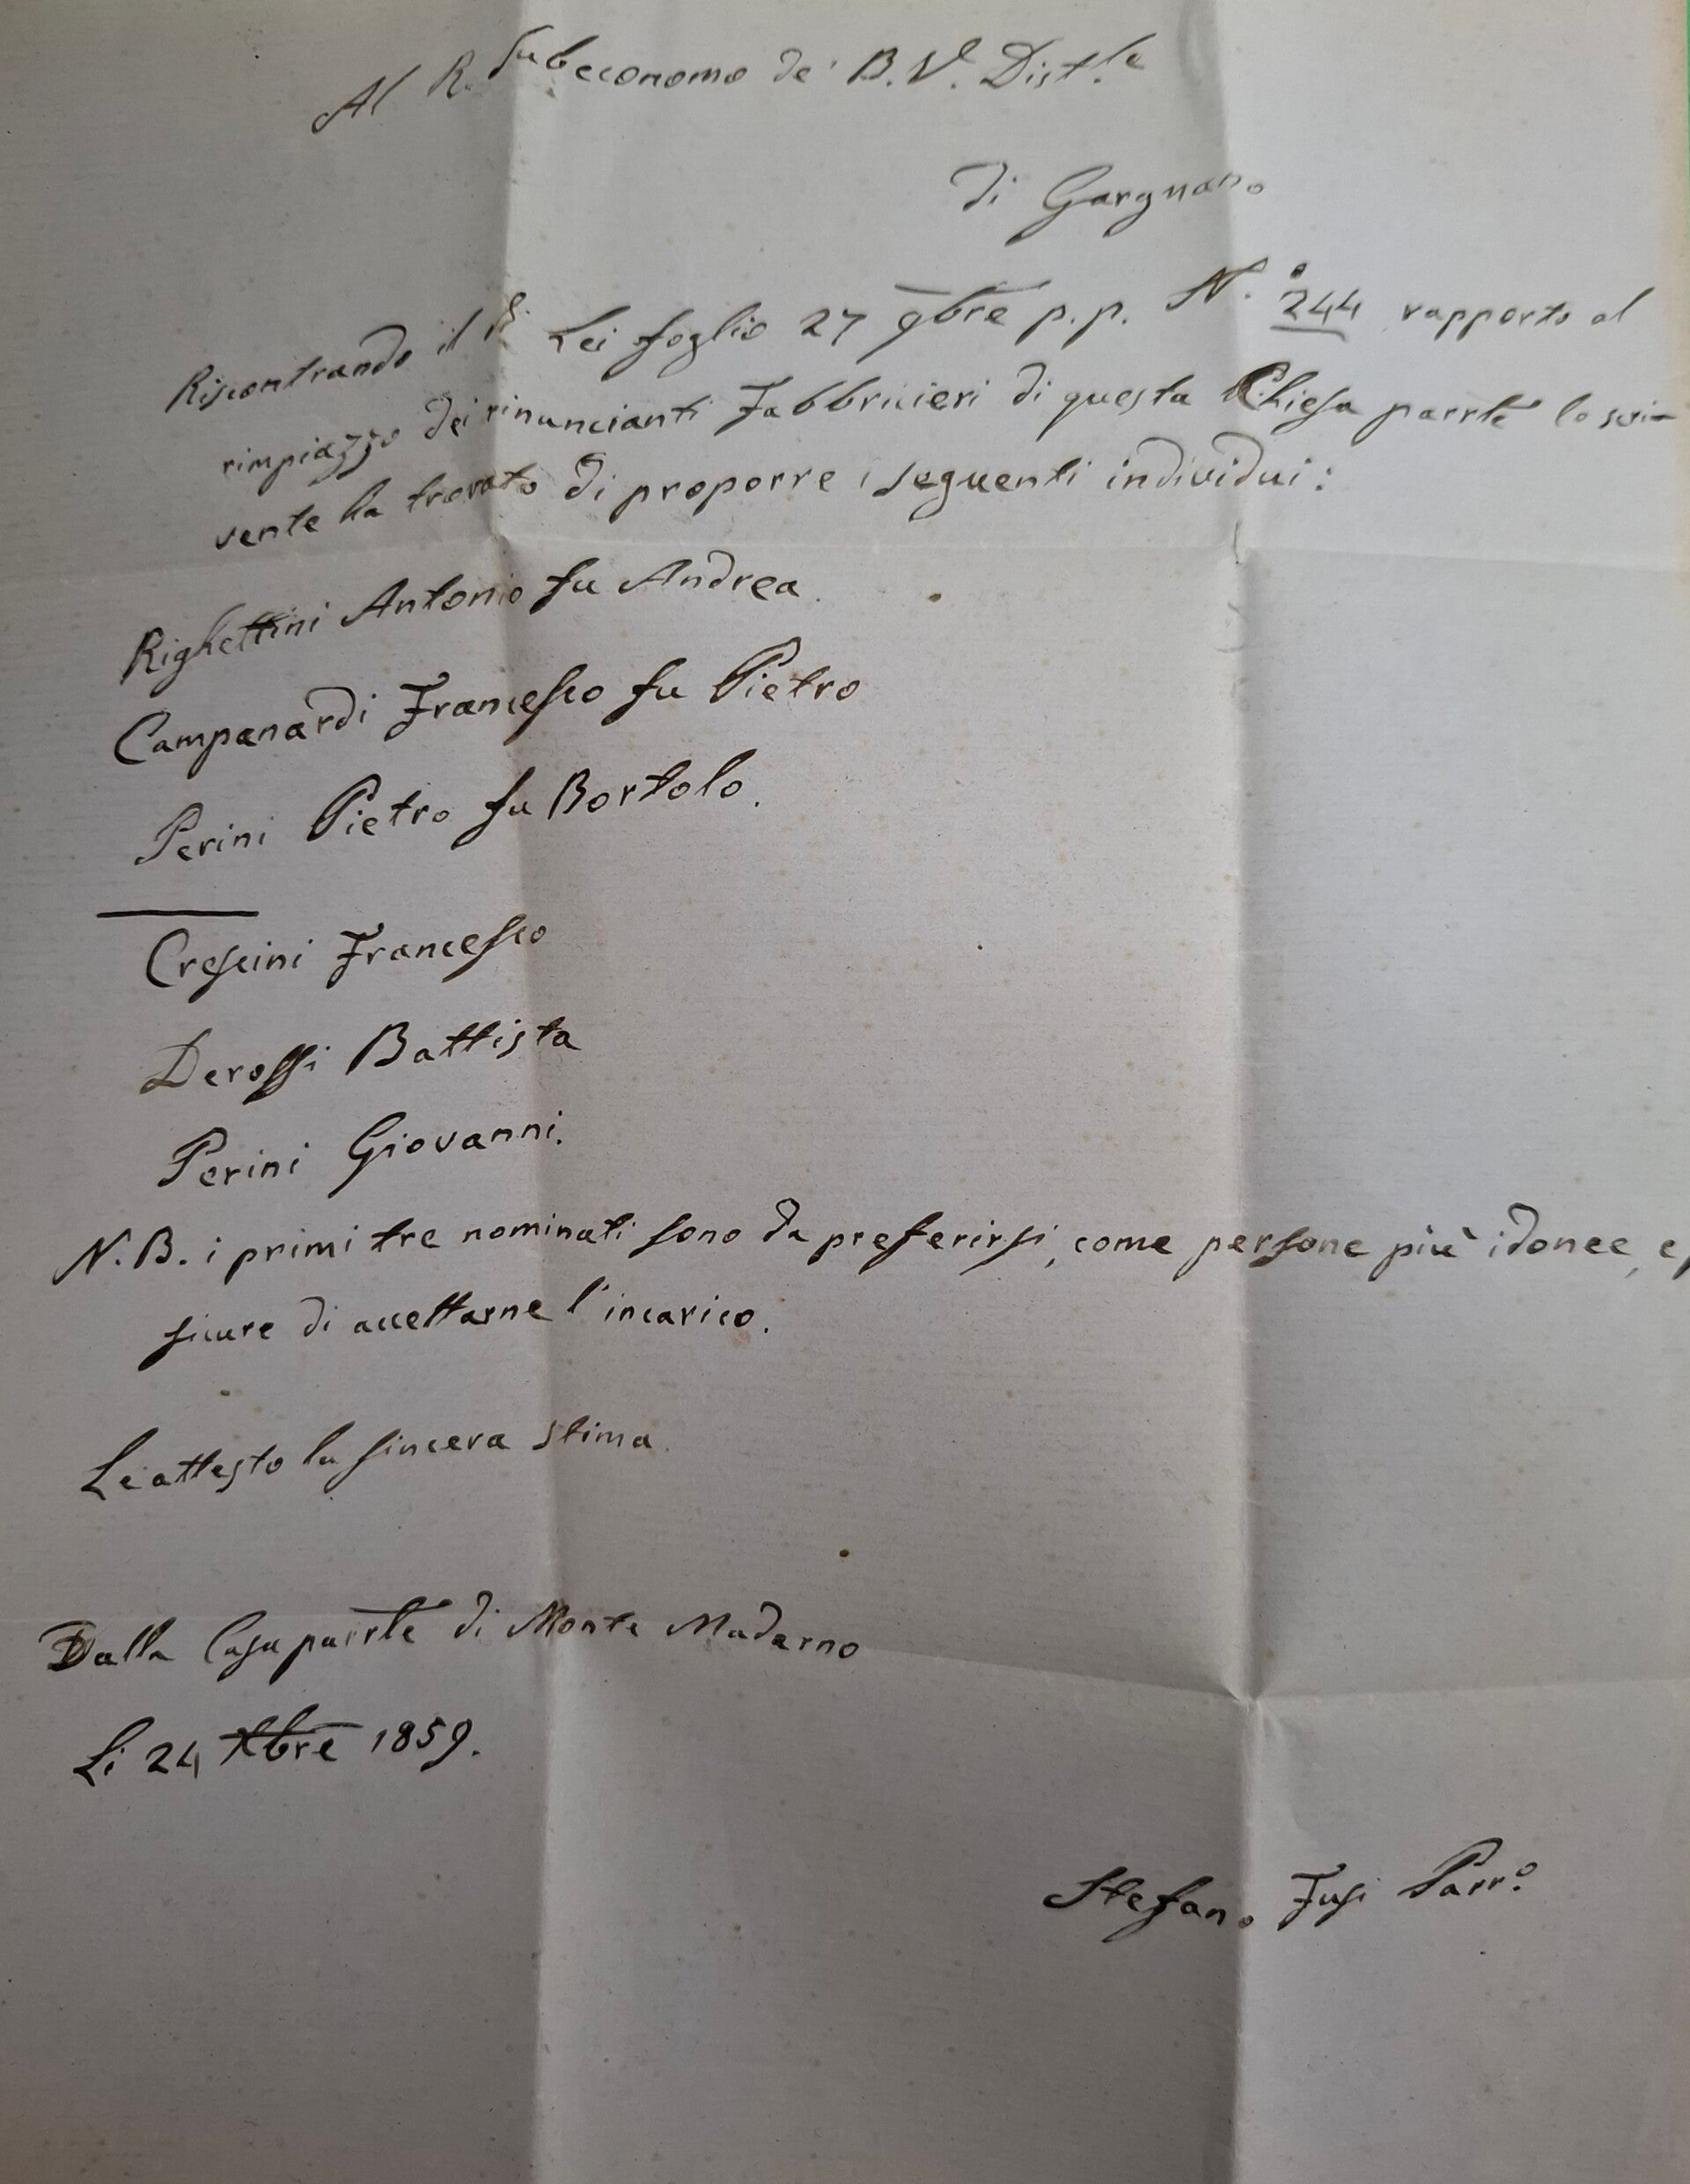 Al R. Subeconomo de' B. V. Dist.le
di Gargnano
Riscontrando il R. Lei foglio 27 9bre p.p. N.° 244 rapporto al
rimpiazzo dei rinuncianti Fabbricieri di questa Chiesa parrle lo scri-
vente ha trovato di proporre i seguenti individui:
Righettini Antonio fu Andrea.
Campanardi Francesco fu Pietro
Perini Pietro fu Bortolo.
Crescini Francesco
Derossi Battista
Perini Giovanni.
N.B. i primi tre nominati sono da preferirsi, come persone più idonee, e
sicure di accettarne l'incarico.
Le attesto la sincera stima.
Dalla Casa parrle di Monte Maderno
Li 24 Xbre 1859.
Stefano Fusi Parr.o